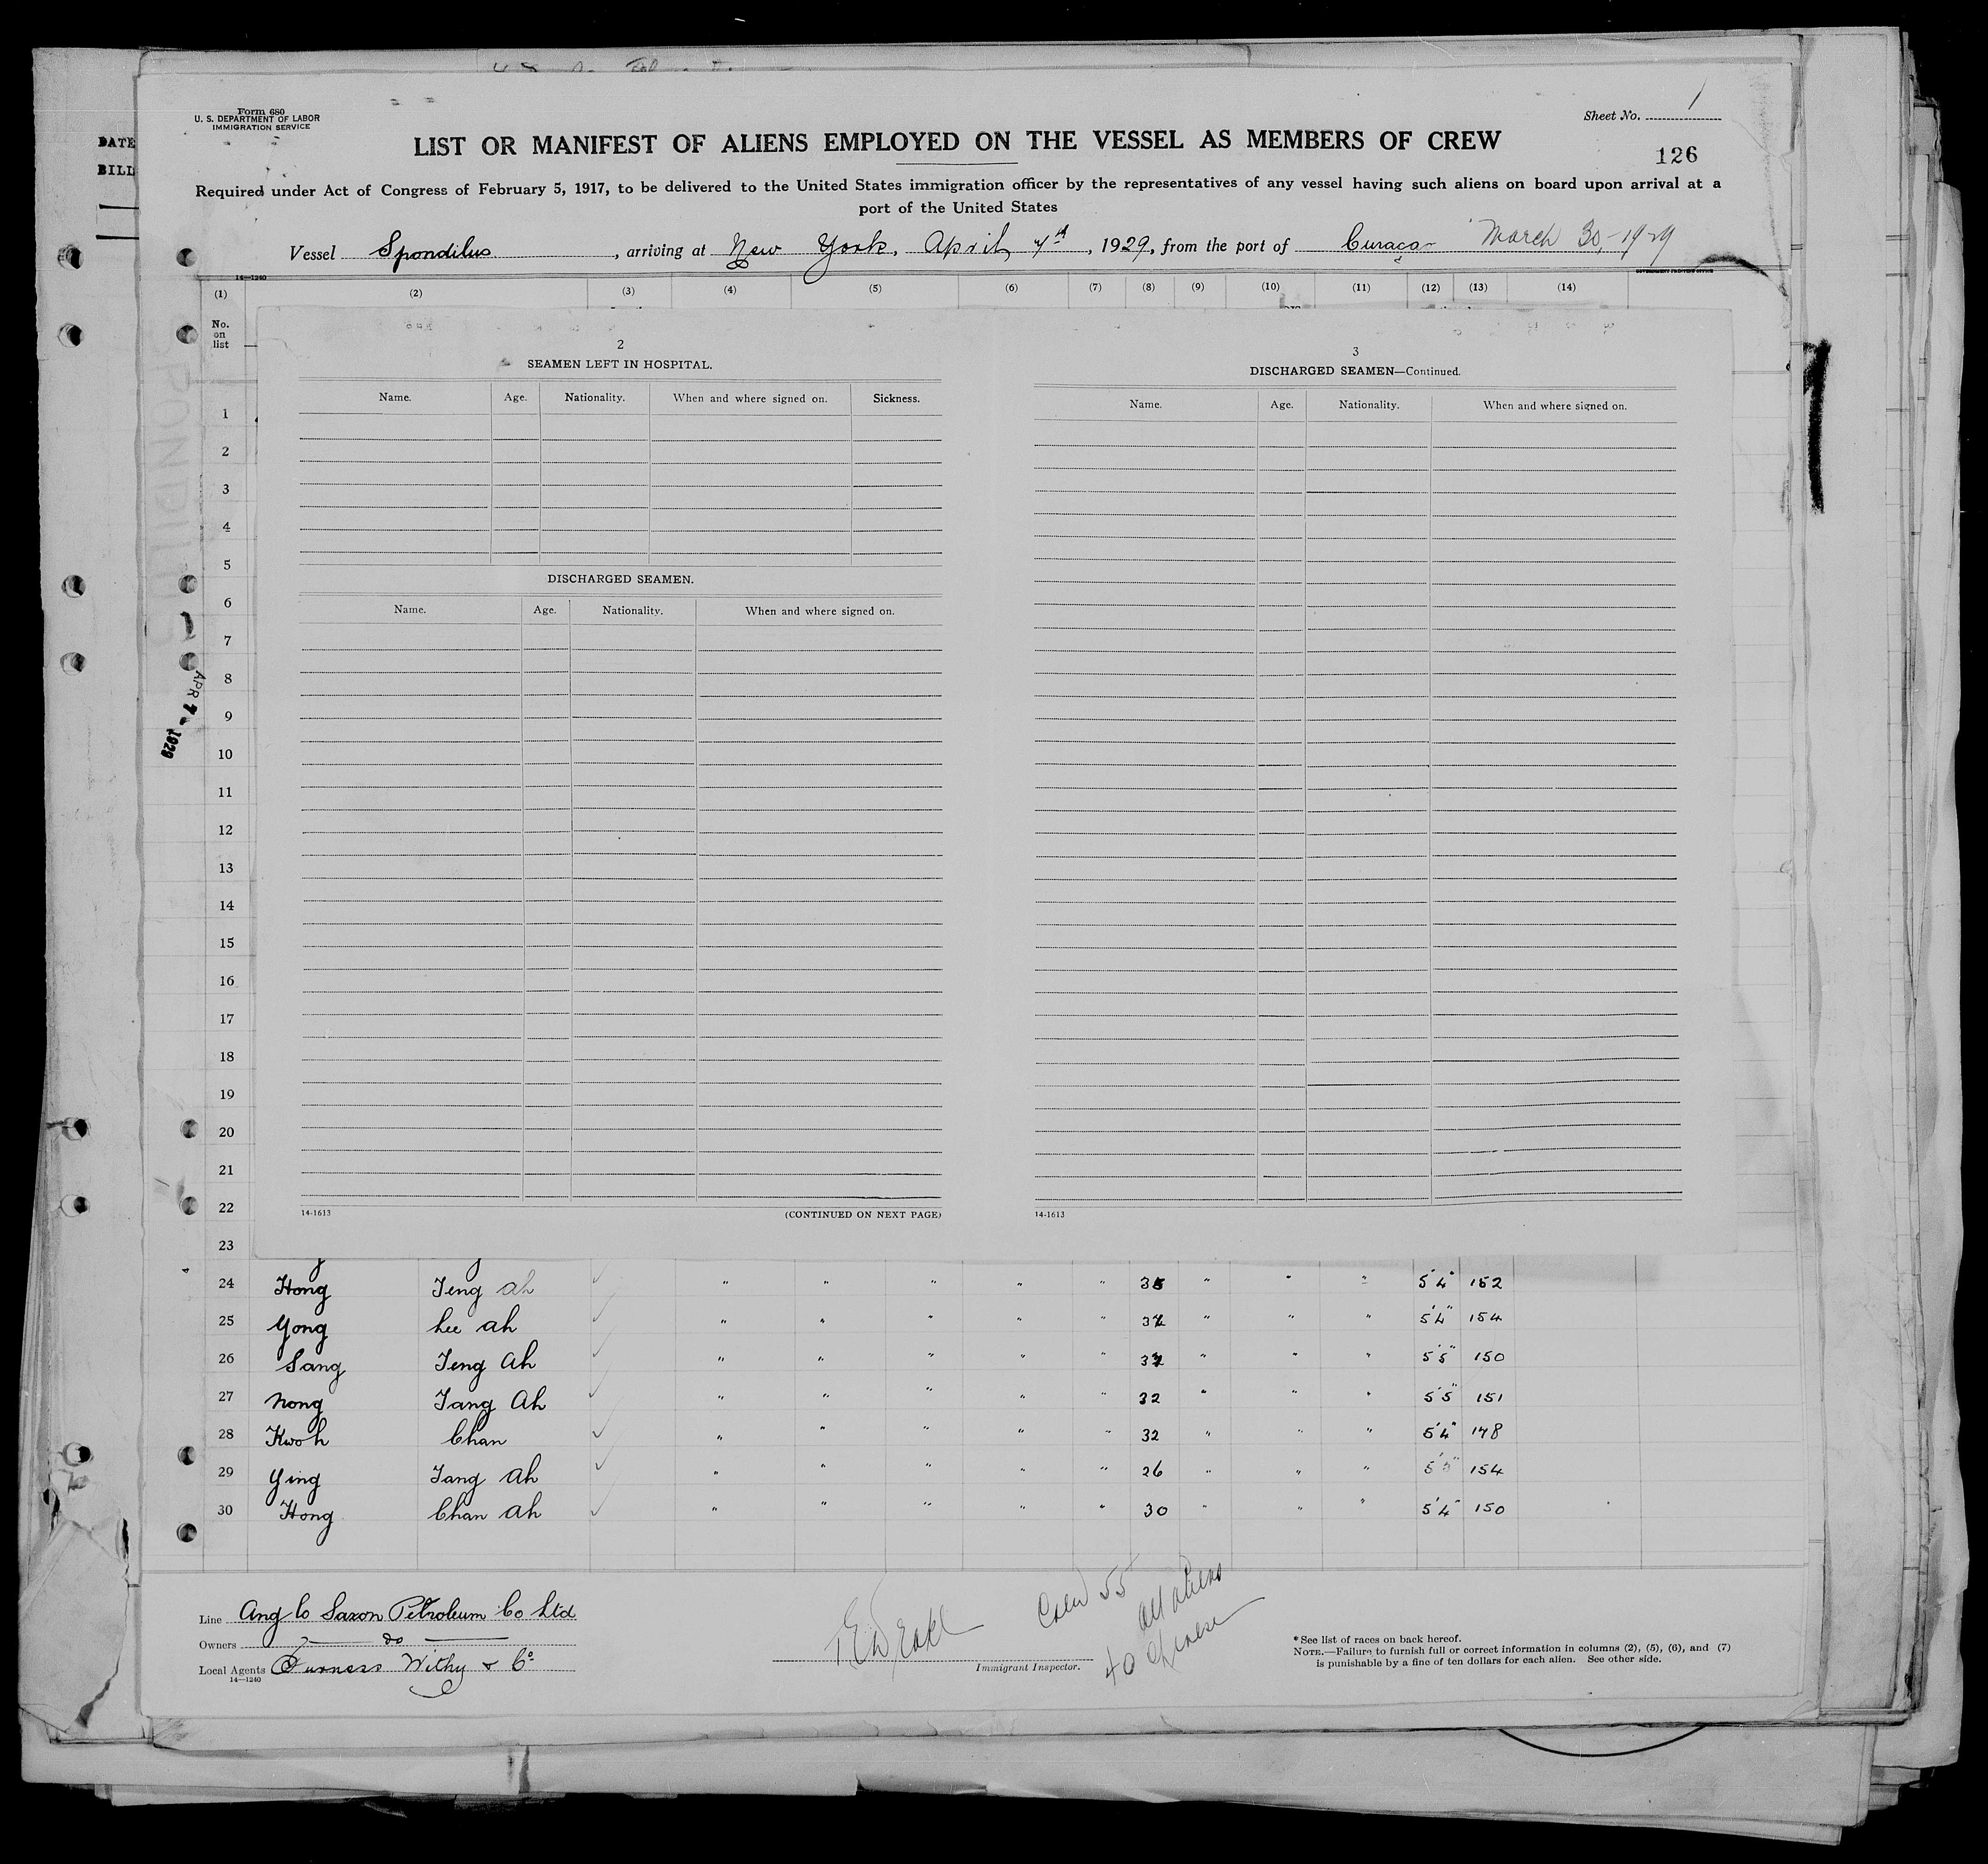 Form 680
U. S. DEPARTMENT OF LABOR
IMMIGRATION SERVICE
Sheet No. 1
LIST OR MANIFEST OF ALIENS EMPLOYED ON THE VESSEL AS MEMBERS OF CREW
126
Required under Act of Congress of February 5, 1917, to be delivered to the United States immigration officer by the representatives of any vessel having such aliens on board upon arrival at a
port of the United States
DATE
BILL
Vessel Spondilus, arriving at New York, April 7th, 1929, from the port of Curacao March 30, 1929
14—1240
(1) (2) (3) (4) (5) (6) (7) (8) (9) (10) (11) (12) (13) (14)
No. on list
2
SEAMEN LEFT IN HOSPITAL.
Name. Age. Nationality. When and where signed on. Sickness.
DISCHARGED SEAMEN.
Name. Age. Nationality. When and where signed on.
14-1613 (CONTINUED ON NEXT PAGE)
3
DISCHARGED SEAMEN—Continued.
Name. Age. Nationality. When and where signed on.
14-1613
1
2
3
4
5
6
7
8
9
10
11
12
13
14
15
16
17
18
19
20
21
22
23
SPONDILUS
APR 7 - 1929
24 Hong Teng ah " " " " " 35 " " " 5'4" 152
25 Yong hee ah " " " " " " " " 5'4" 154
26 Sang Teng Ah " " " " " " " " 5'5" 150
27 Nong Tang Ah " " " " " 32 " " " 5'5" 151
28 Kwoh Chan " " " " " 32 " " " 5'4" 148
29 Ying Tang Ah " " " " " 26 " " " 5'5" 154
30 Hong Chan Ah " " " " " 30 " " " 5'4" 150
Line Anglo Saxon Petroleum Co Ltd
Owners do
Local Agents Furness Withy & Co
14—1240
Immigrant Inspector.
Crew 55
all aliens
40 Chinese
* See list of races on back hereof.
NOTE.—Failure to furnish full or correct information in columns (2), (5), (6), and (7)
is punishable by a fine of ten dollars for each alien. See other side.